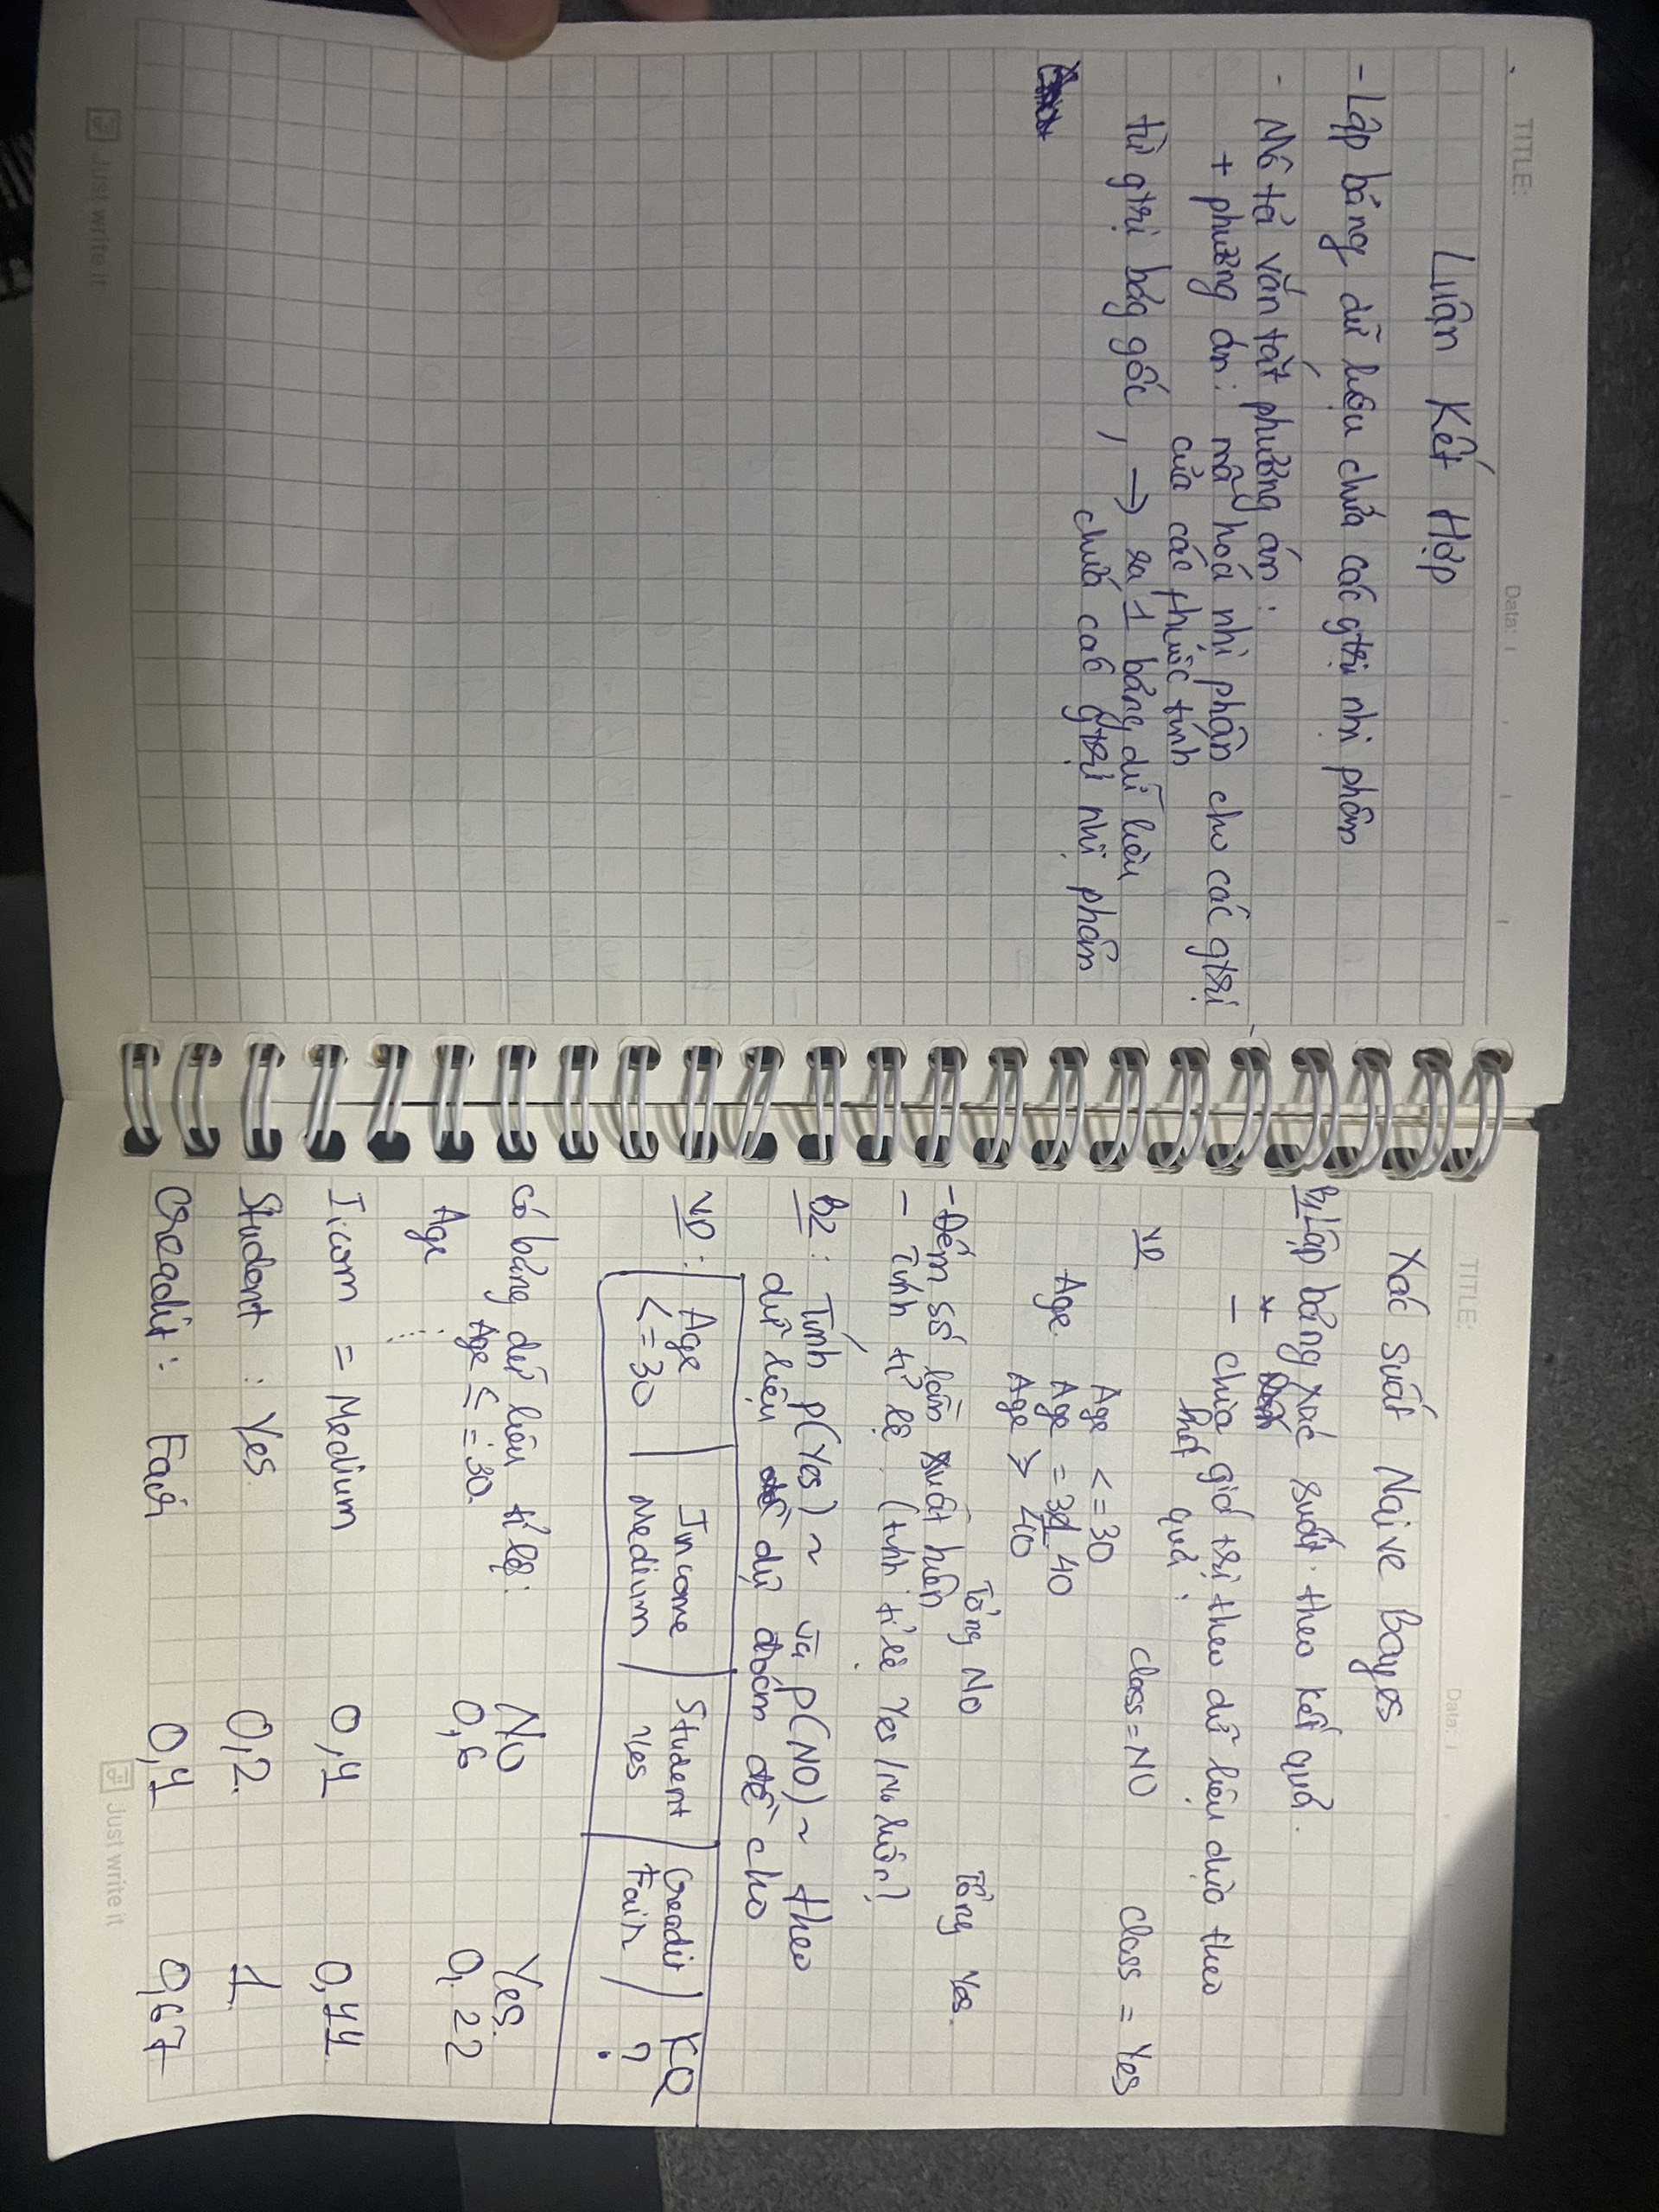 TITLE:
Data:
Luận Kết Hợp
- Lập bảng dữ liệu chứa các gtrị nhị phân
- Mô tả vắn tắt phương án :
+ phương án : mã hoá nhị phân cho các gtrị
của các thuộc tính
từ gtrị bảg gốc , → ra 1 bảng dữ liệu
chứa các gtrị nhị phân
Just write it
TITLE:
Data:
Xác suất Naive Bayes
B1 Lập bảng xác suất theo kết quả.
- Chia giá trị theo dữ liệu dựa theo
kết quả :
VD class = NO class = Yes
Age <= 30
Age. Age = 31 40
Age > 40
Tổng NO Tổng Yes.
- Đếm số lần xuất hiện
- Tính tỉ lệ. (tính tỉ lệ Yes/No luôn)
B2 : Tính p(Yes) ~ và p(NO) ~ theo
dữ liệu dự đoán đề cho
VD : Age Income Student Creadit KQ
<=30 Medium Yes Fair ?
Có bảng dữ liệu tỉ lệ : No Yes.
Age <= 30. 0,6 0,22
Age
Iicom = Medium 0,4 0,44
Student : Yes 0,2. 1
Creadit : Fair 0,4 0,67
Just write it